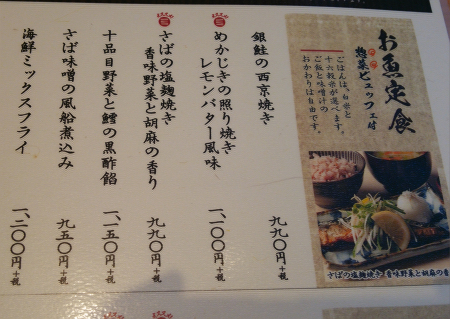 お魚定食
惣菜ビュッフェ付
ごはんは、白米と
十六穀米が選べます。
ご飯と味噌汁の
おかわりは自由です。
さばの塩麹焼き 香味野菜と胡麻の香
銀鮭の西京焼き
九九〇円+税
めかじきの照り焼き
レモンバター風味
一、一〇〇円+税
さばの塩麹焼き
香味野菜と胡麻の香り
九九〇円+税
十品目野菜と鱈の黒酢餡
一、一五〇円+税
さば味噌の風船煮込み
九五〇円+税
海鮮ミックスフライ
一、二〇〇円+税